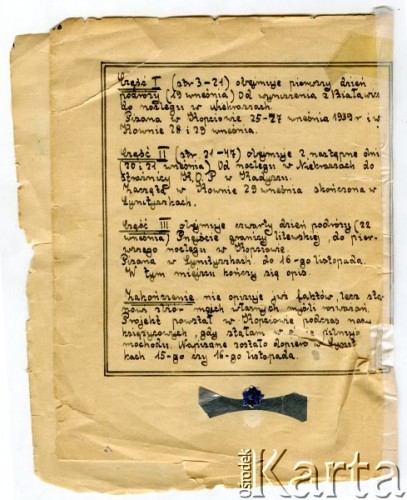 Część I (str. 3-21) obejmuje pierwszy dzień
podróży (19 września) Od wyruszenia z Białawicz
do noclegu w Niekraszach.
Pisana w Kopciowie 25-27 września 1939 r i w
Kownie 28 i 29 września.
Część II (str. 21-47) obejmuje 2 następne dni
(20 i 21 września) Od noclegu w Niekraszach do
Strażnicy K.O.P w Kadyszu.
Zaczęta w Kownie 29 września skończona w
Część III obejmuje czwarty dzień podróży (22
września) Przejście granicy litewskiej do pier-
wszego noclegu w Kopciowie.
Pisana w do 16-go listopada.
W tym miejscu kończy się opis.
Zakończenie nie opisuje już faktów, lecz sta-
nowi zbiór moich własnych myśli i rozważań.
Projekt powstał w Kopciowie podczas nocy
księżycowych, gdy stałam
mochodu. Napisane zostało dopiero w
kach 15-go czy 16-go listopada.
ośrodek
Karta